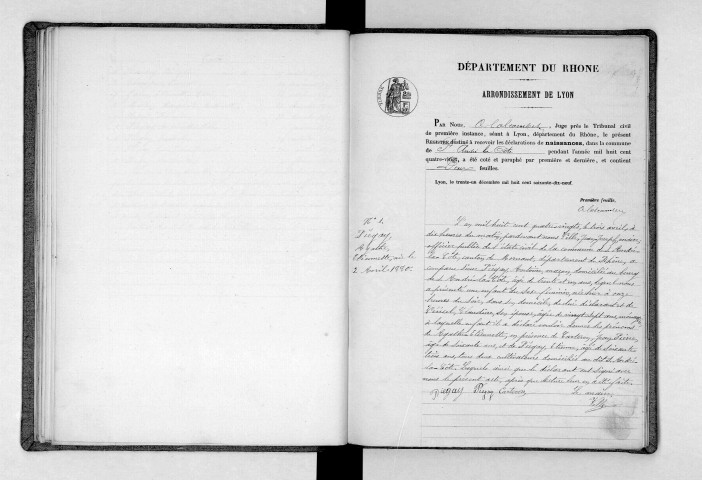 DÉPARTEMENT DU RHONE
ARRONDISSEMENT DE LYON
PAR NOUS, Juge près le Tribunal civil
de première instance, séant à Lyon, département du Rhône, le présent
REGISTRE destiné à recevoir les déclarations de naissances, dans la commune
de St André la Côte pendant l'année mil huit cent
quatre-vingt, a été coté et paraphé par première et dernière, et contient
Deux feuilles.
Lyon, le trente-un décembre mil huit cent soixante-dix-neuf.
Première feuille.
N° 1.
Agathe
Etiennette, née le
2 Avril 1880.
L'an mil huit cent quatre vingt, le trois avril à
dix heures du matin, pardevant nous Jean Joseph, maire,
officier public de l'état civil de la commune de St André
la Côte, canton de Mornant, département du Rhône, a
comparu Antoine, maçon, domicilié au bourg
de St André la Côte, âgé de trente et un ans, lequel nous
a présenté un enfant du sexe féminin, née hier à onze
heures du soir, dans son domicile, de lui déclarant et de
Claudine, son épouse, âgée de vingt sept ans, ménagère
à laquelle enfant il a déclaré vouloir donner les prénoms
de Agathe Etiennette, en présence de Jean Pierre,
âgé de soixante ans, et de Etienne, âgé de soixante
trois ans, tous deux cultivateurs domiciliés au dit St André
la Côte. Lesquels ainsi que le déclarant ont signé avec
nous le présent acte, après que lecture leur en a été faite.
Le maire,